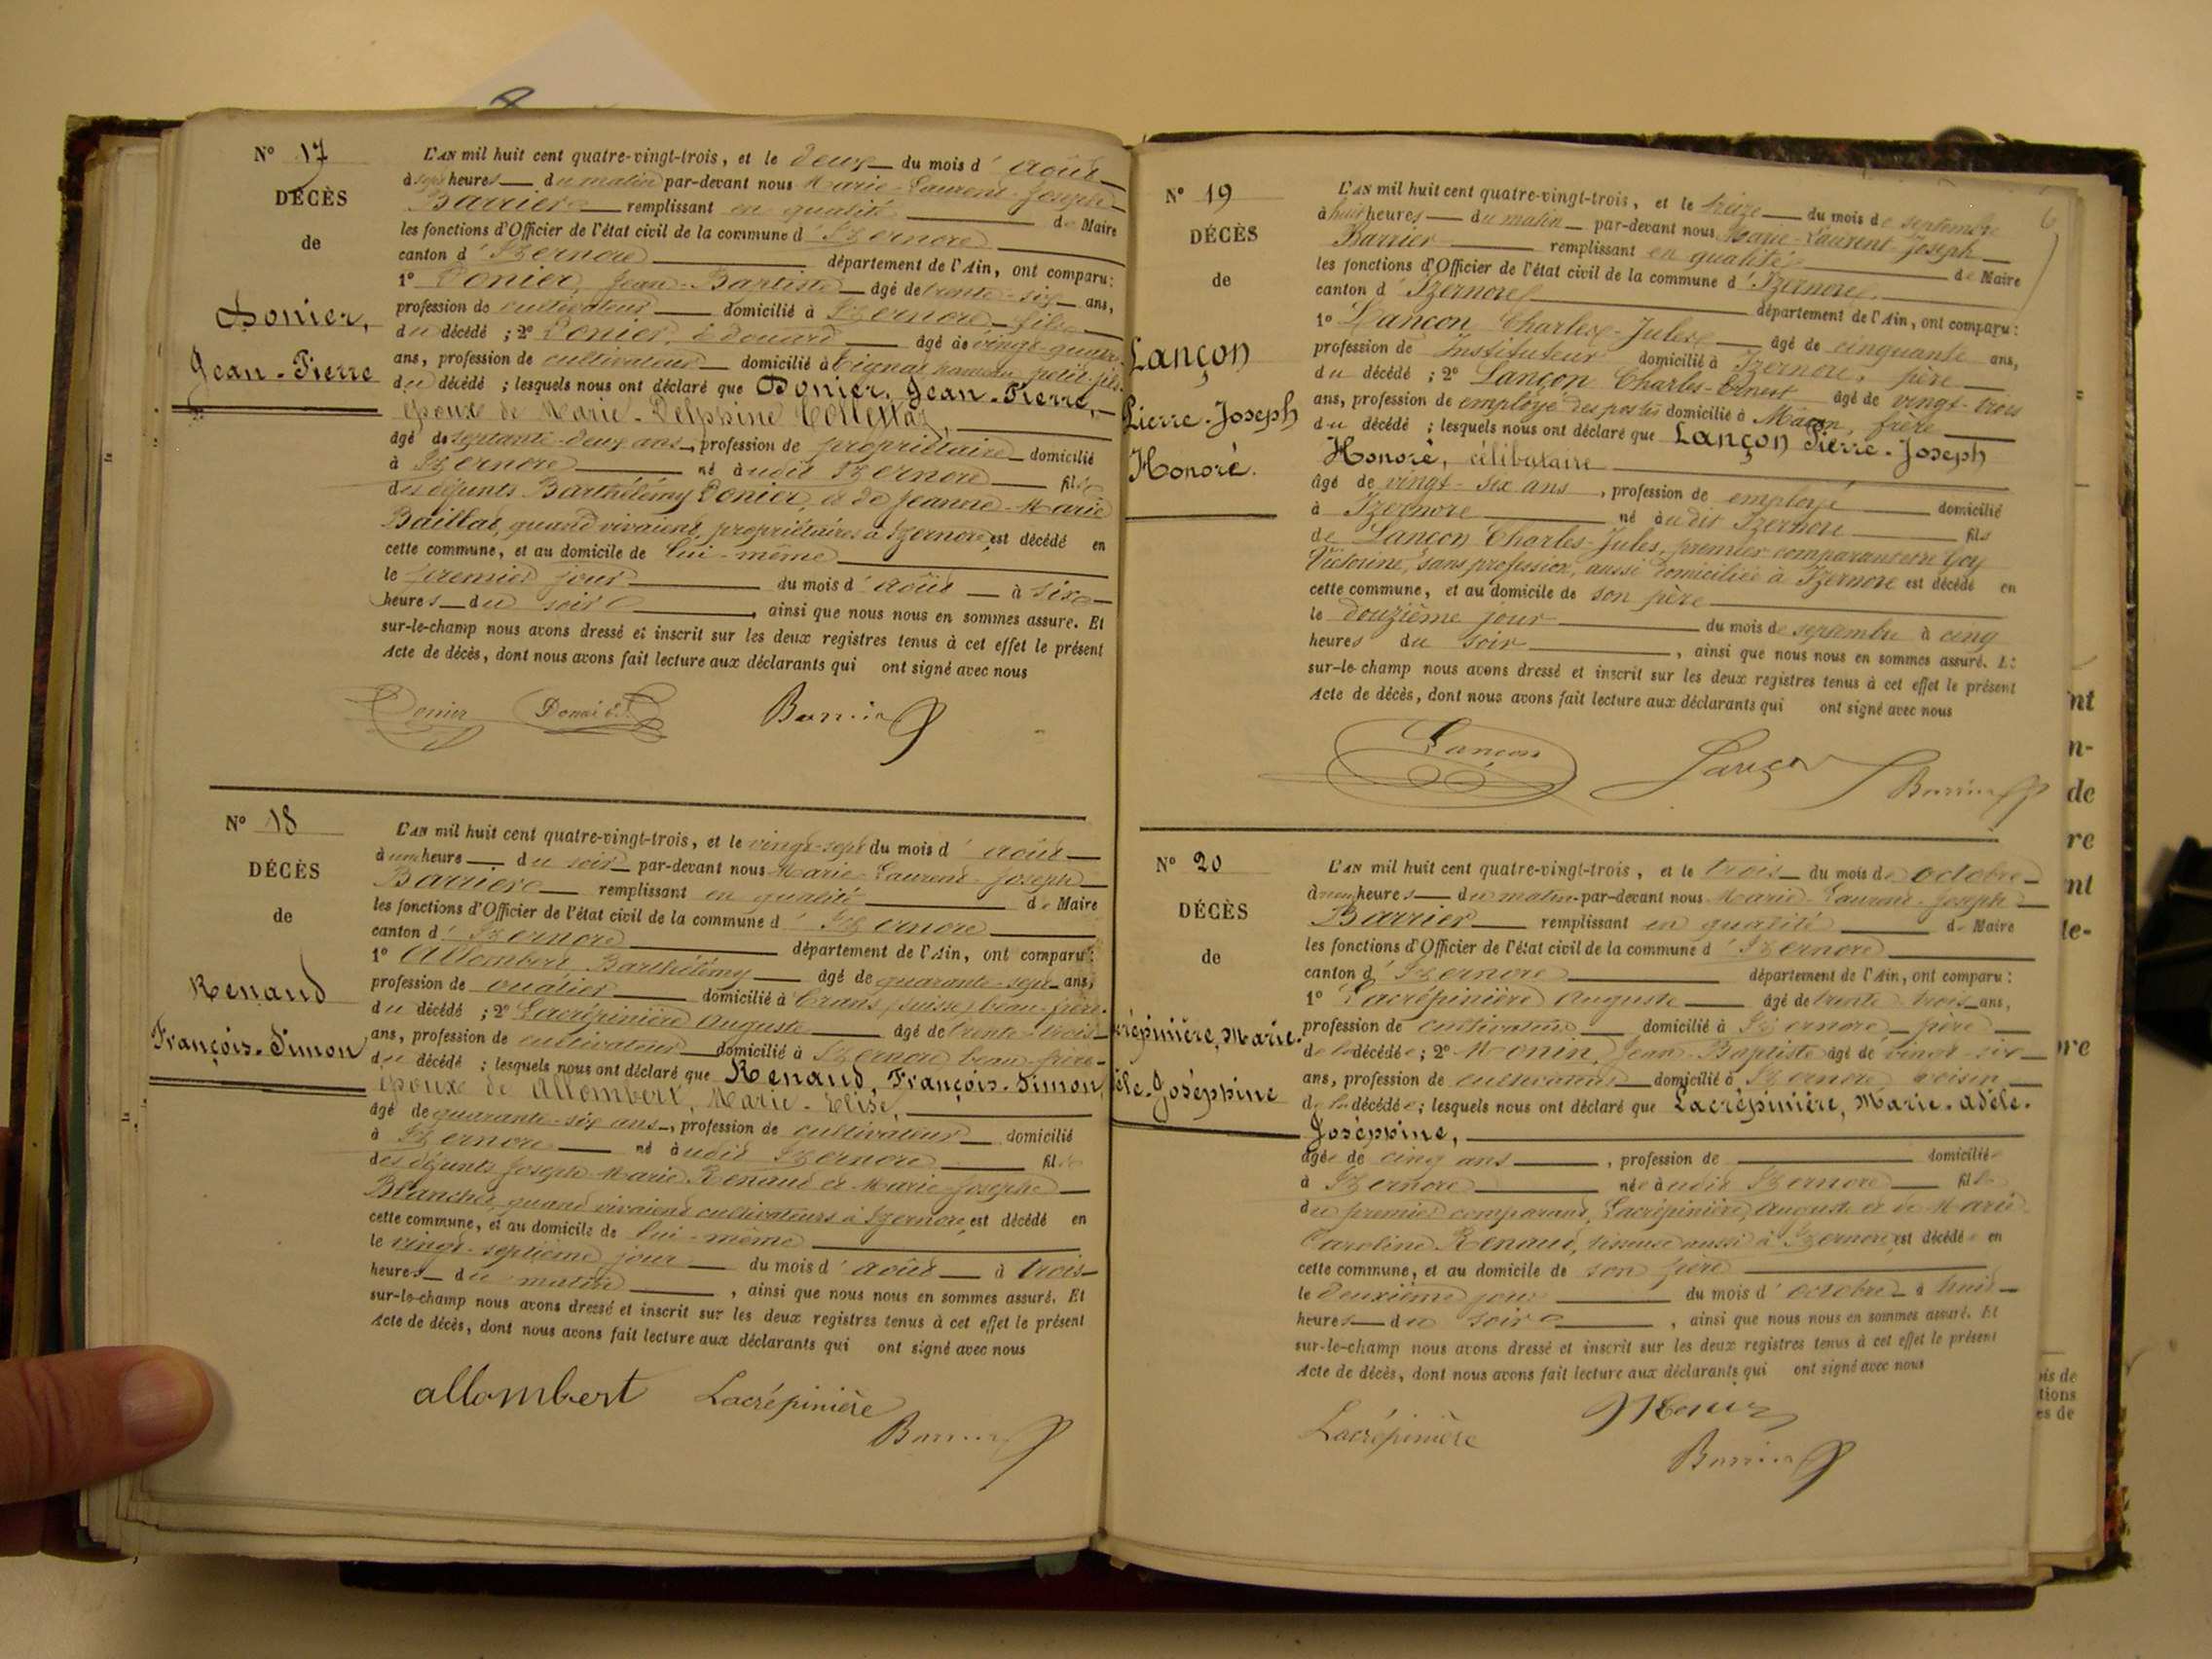 N° 17
DÉCÈS
de
Donier,
Jean-Pierre
L'AN mil huit cent quatre-vingt-trois, et le deux du mois d'août
à sept heures du matin par-devant nous Marie-Laurent-Joseph
Barrier remplissant en qualité de Maire
les fonctions d'Officier de l'état civil de la commune d'Izernore
canton d'Izernore département de l'Ain, ont comparu:
1° Donier, Jean-Baptiste âgé de trente-six ans,
profession de cultivateur domicilié à Izernore, fils
du décédé ; 2° Donier, Edouard âgé de vingt-quatre
ans, profession de cultivateur domicilié à hameau petit-fils
du décédé ; lesquels nous ont déclaré que Donier, Jean-Pierre,
époux de Marie-Delphine
âgé de septante-deux ans, profession de propriétaire domicilié
à Izernore né audit Izernore fils
des défunts Barthélémy Donier, et de Jeanne-Marie
Baillat, quand vivaient, propriétaires à Izernore, est décédé en
cette commune, et au domicile de lui-même
le premier jour du mois d'août à six
heures du soir, ainsi que nous nous en sommes assuré. Et
sur-le-champ nous avons dressé et inscrit sur les deux registres tenus à cet effet le présent
Acte de décès, dont nous avons fait lecture aux déclarants qui ont signé avec nous
Donier Donier Barrier
N° 18
DÉCÈS
de
Renaud
François-Simon
L'AN mil huit cent quatre-vingt-trois, et le vingt-sept du mois d'août
à une heure du soir par-devant nous Marie-Laurent-Joseph
Barrier remplissant en qualité de Maire
les fonctions d'Officier de l'état civil de la commune d'Izernore
canton d'Izernore département de l'Ain, ont comparu:
1° Allombert Barthélémy âgé de quarante-sept ans,
profession de domicilié à Crans (Suisse) beau-frère
du décédé ; 2° Lacrépinière Auguste âgé de trente-trois
ans, profession de cultivateur domicilié à Izernore beau-frère
du décédé ; lesquels nous ont déclaré que Renaud, François-Simon,
époux de Allombert, Marie-Elise,
âgé de quarante-six ans, profession de cultivateur domicilié
à Izernore né audit Izernore fils
des défunts Joseph-Marie Renaud et Marie-Josephe
Blanchet, quand vivaient cultivateurs à Izernore, est décédé en
cette commune, et au domicile de lui-même
le vingt-septième jour du mois d'août à trois
heures du matin, ainsi que nous nous en sommes assuré. Et
sur-le-champ nous avons dressé et inscrit sur les deux registres tenus à cet effet le présent
Acte de décès, dont nous avons fait lecture aux déclarants qui ont signé avec nous
allombert Lacrépinière
Barrier
N° 19
DÉCÈS
de
Lançon
Pierre-Joseph
Honoré.
L'AN mil huit cent quatre-vingt-trois, et le treize du mois de septembre
à huit heures du matin par-devant nous Marie-Laurent-Joseph
Barrier remplissant en qualité de Maire
les fonctions d'Officier de l'état civil de la commune d'Izernore
canton d'Izernore département de l'Ain, ont comparu:
1° Lançon Charles-Jules âgé de cinquante ans,
profession de Instituteur domicilié à Izernore, père
du décédé ; 2° Lançon Charles-Ernest âgé de vingt-trois
ans, profession de employé des postes domicilié à Mâcon, frère
du décédé ; lesquels nous ont déclaré que Lançon Pierre-Joseph
Honoré, célibataire
âgé de vingt-six ans, profession de employé domicilié
à Izernore né audit Izernore fils
de Lançon Charles-Jules, premier comparant et de Goy
Victorine, sans profession, aussi domiciliée à Izernore est décédé en
cette commune, et au domicile de son père
le douzième jour du mois de septembre à cinq
heures du soir, ainsi que nous nous en sommes assuré. Et
sur-le-champ nous avons dressé et inscrit sur les deux registres tenus à cet effet le présent
Acte de décès, dont nous avons fait lecture aux déclarants qui ont signé avec nous
Lançon Lançon Barrier
N° 20
DÉCÈS
de
crépinière, Marie-
èle-Joséphine
L'AN mil huit cent quatre-vingt-trois, et le trois du mois de octobre
à neuf heures du matin par-devant nous Marie-Laurent-Joseph
Barrier remplissant en qualité de Maire
les fonctions d'Officier de l'état civil de la commune d'Izernore
canton d'Izernore département de l'Ain, ont comparu:
1° Lacrépinière Auguste âgé de trente-trois ans,
profession de cultivateur domicilié à Izernore père
de la décédée ; 2° Monin, Jean-Baptiste âgé de vingt-six
ans, profession de cultivateur domicilié à Izernore voisin
de la décédée ; lesquels nous ont déclaré que Lacrépinière, Marie-Adèle-
Joséphine,
âgée de cinq ans, profession de domiciliée
à Izernore née audit Izernore fille
du premier comparant, Lacrépinière, Auguste et de Marie
Caroline Renaud, tisseuse aussi à Izernore est décédée en
cette commune, et au domicile de son père
le deuxième jour du mois d'octobre à huit
heures du soir, ainsi que nous nous en sommes assuré. Et
sur-le-champ nous avons dressé et inscrit sur les deux registres tenus à cet effet le présent
Acte de décès, dont nous avons fait lecture aux déclarants qui ont signé avec nous
Lacrépinière Monin
Barrier
nt
n-
de
re
nt
te-
re
is de
tions
es de